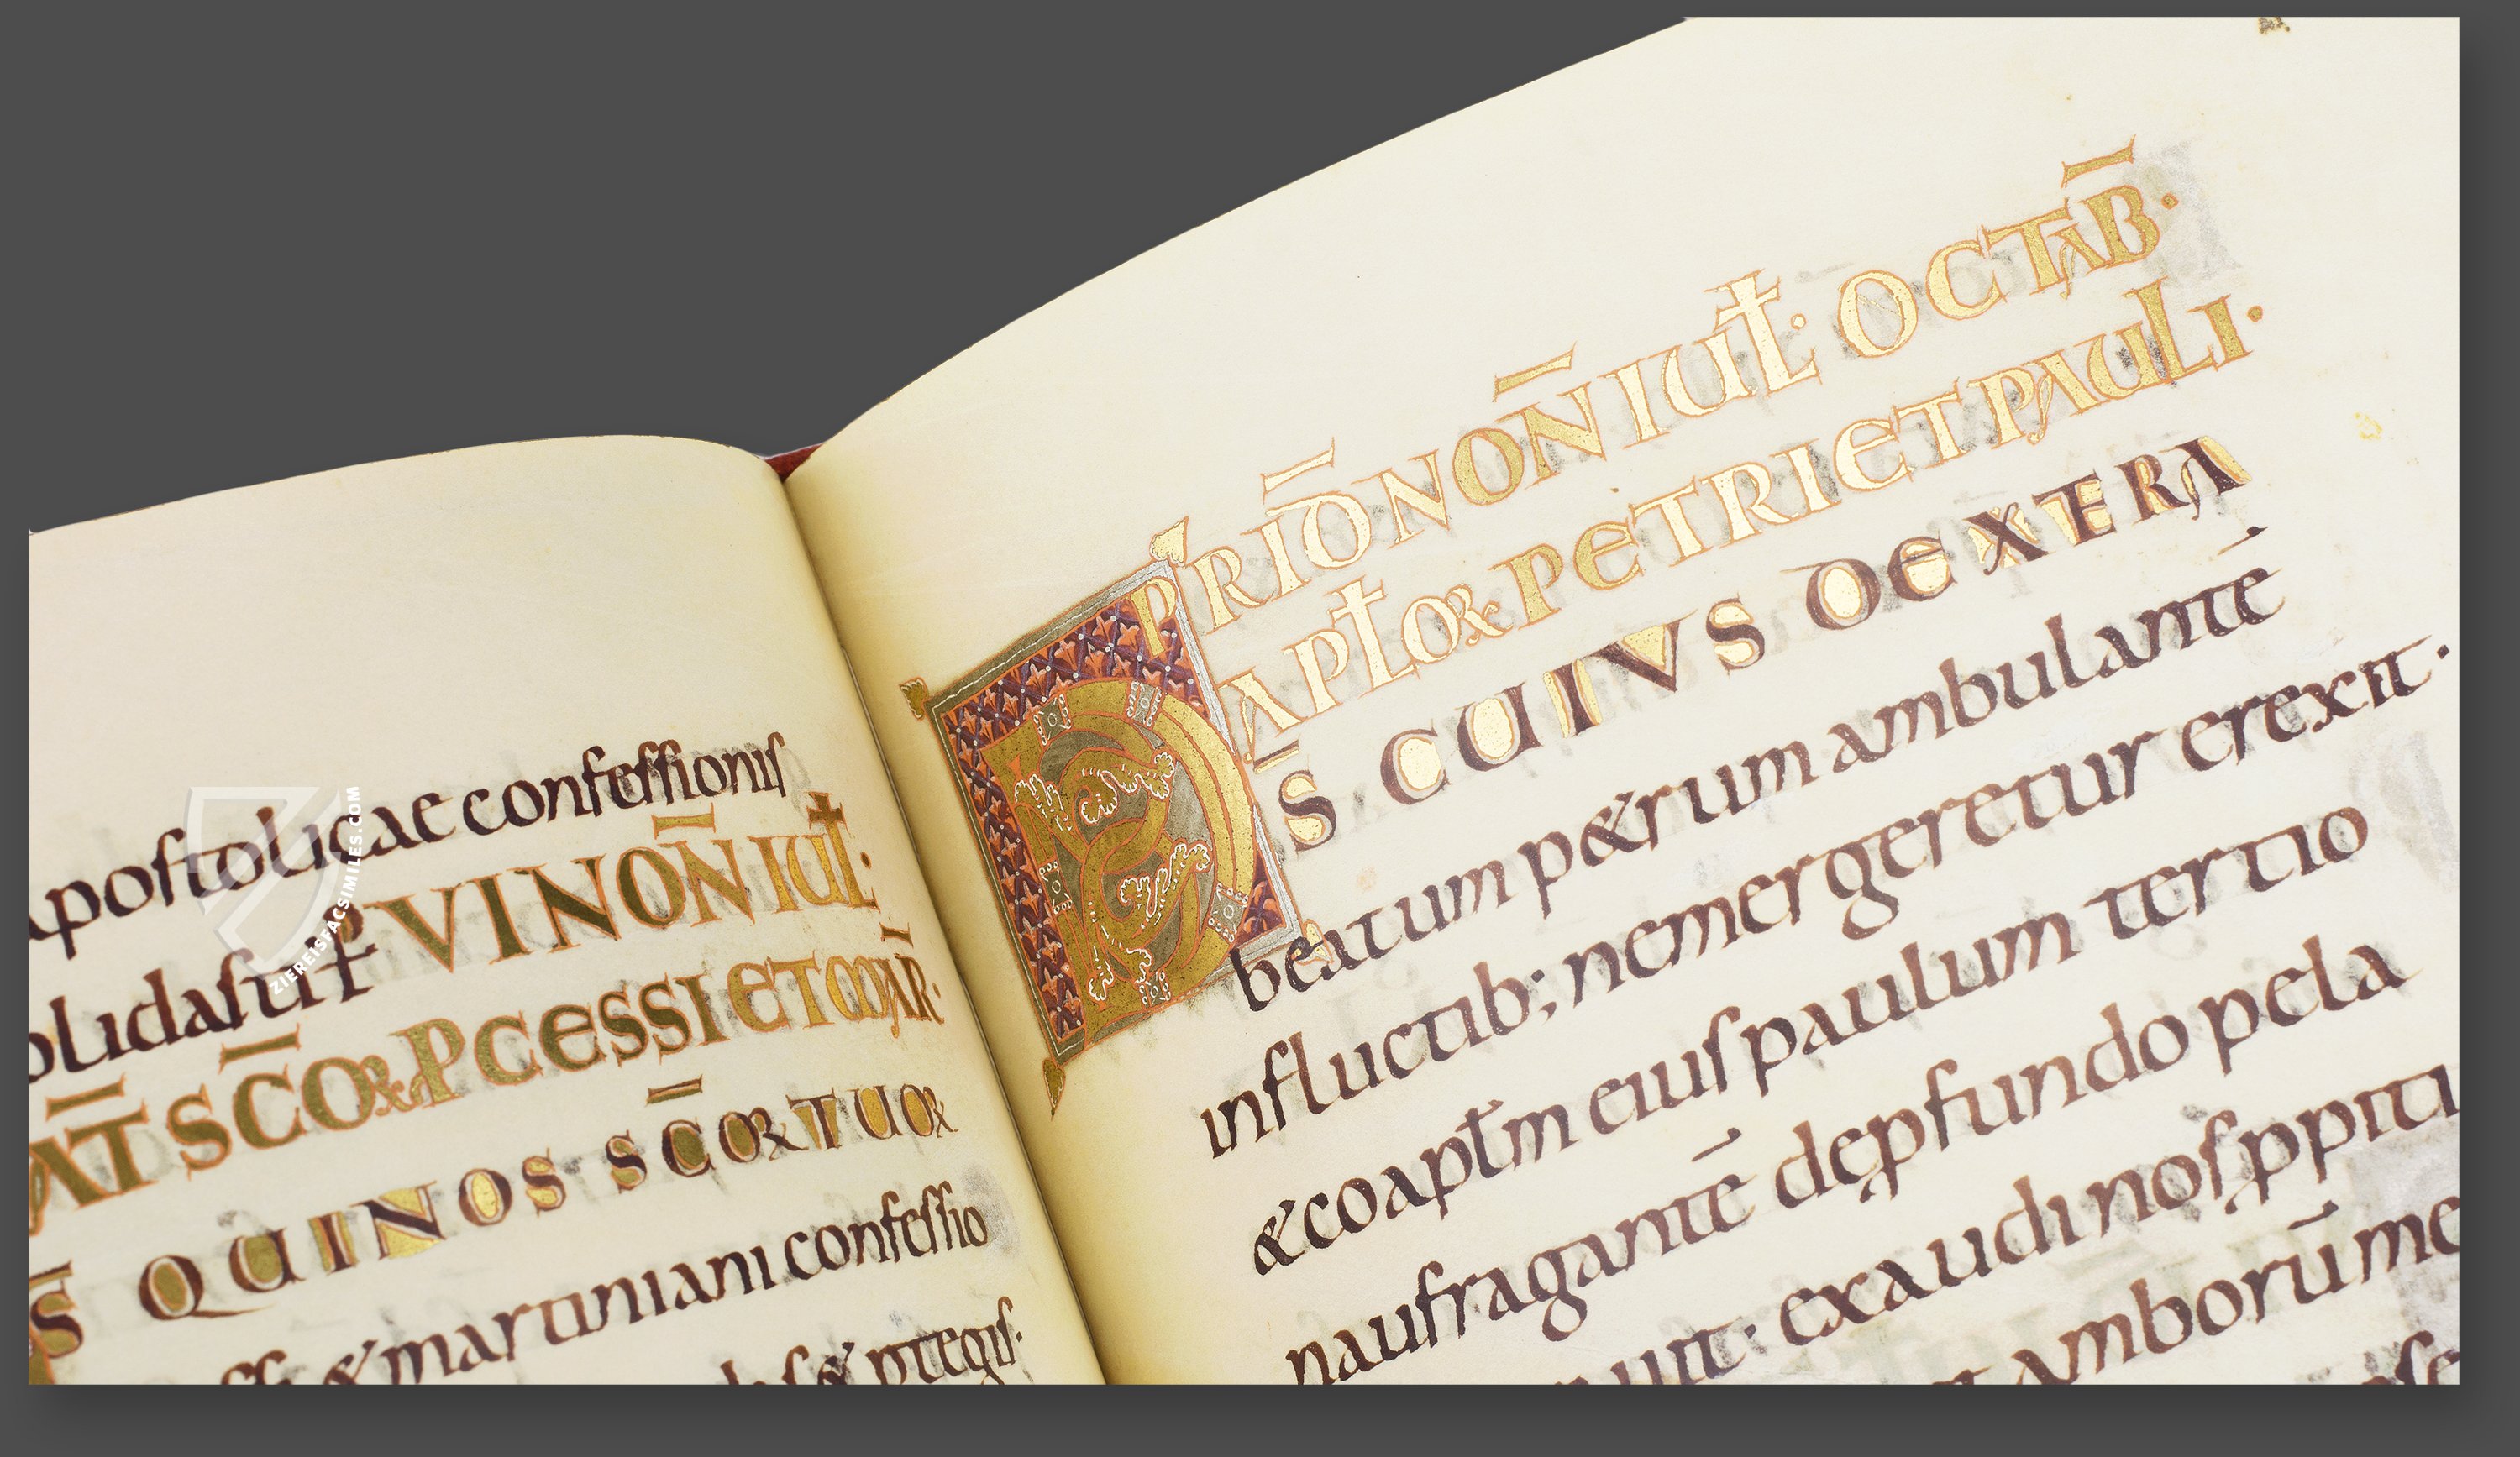 apostolicae confessionis
solidasti p̄ VI NON̄ IUƚ·
NAT̄ SC̄OꝜ PCESSI ET MAR̄·
D̄S QUI NOS SC̄OꝜ TUOꝜ
& martiniani confessio
& ptegis·
PRID̄ NON̄ IUƚ· OCTAB̄·
APƚOꝜ PETRI ET PAULI·
D̄S CUIUS DEXTERA
beatum p&rum ambulantē
influctib; nemergeretur erexit·
&coapƚm eius paulum tertio
naufragantē depfundo pela
exaudi nos ppiti
amborū me
ZIEREISFACSIMILES.COM